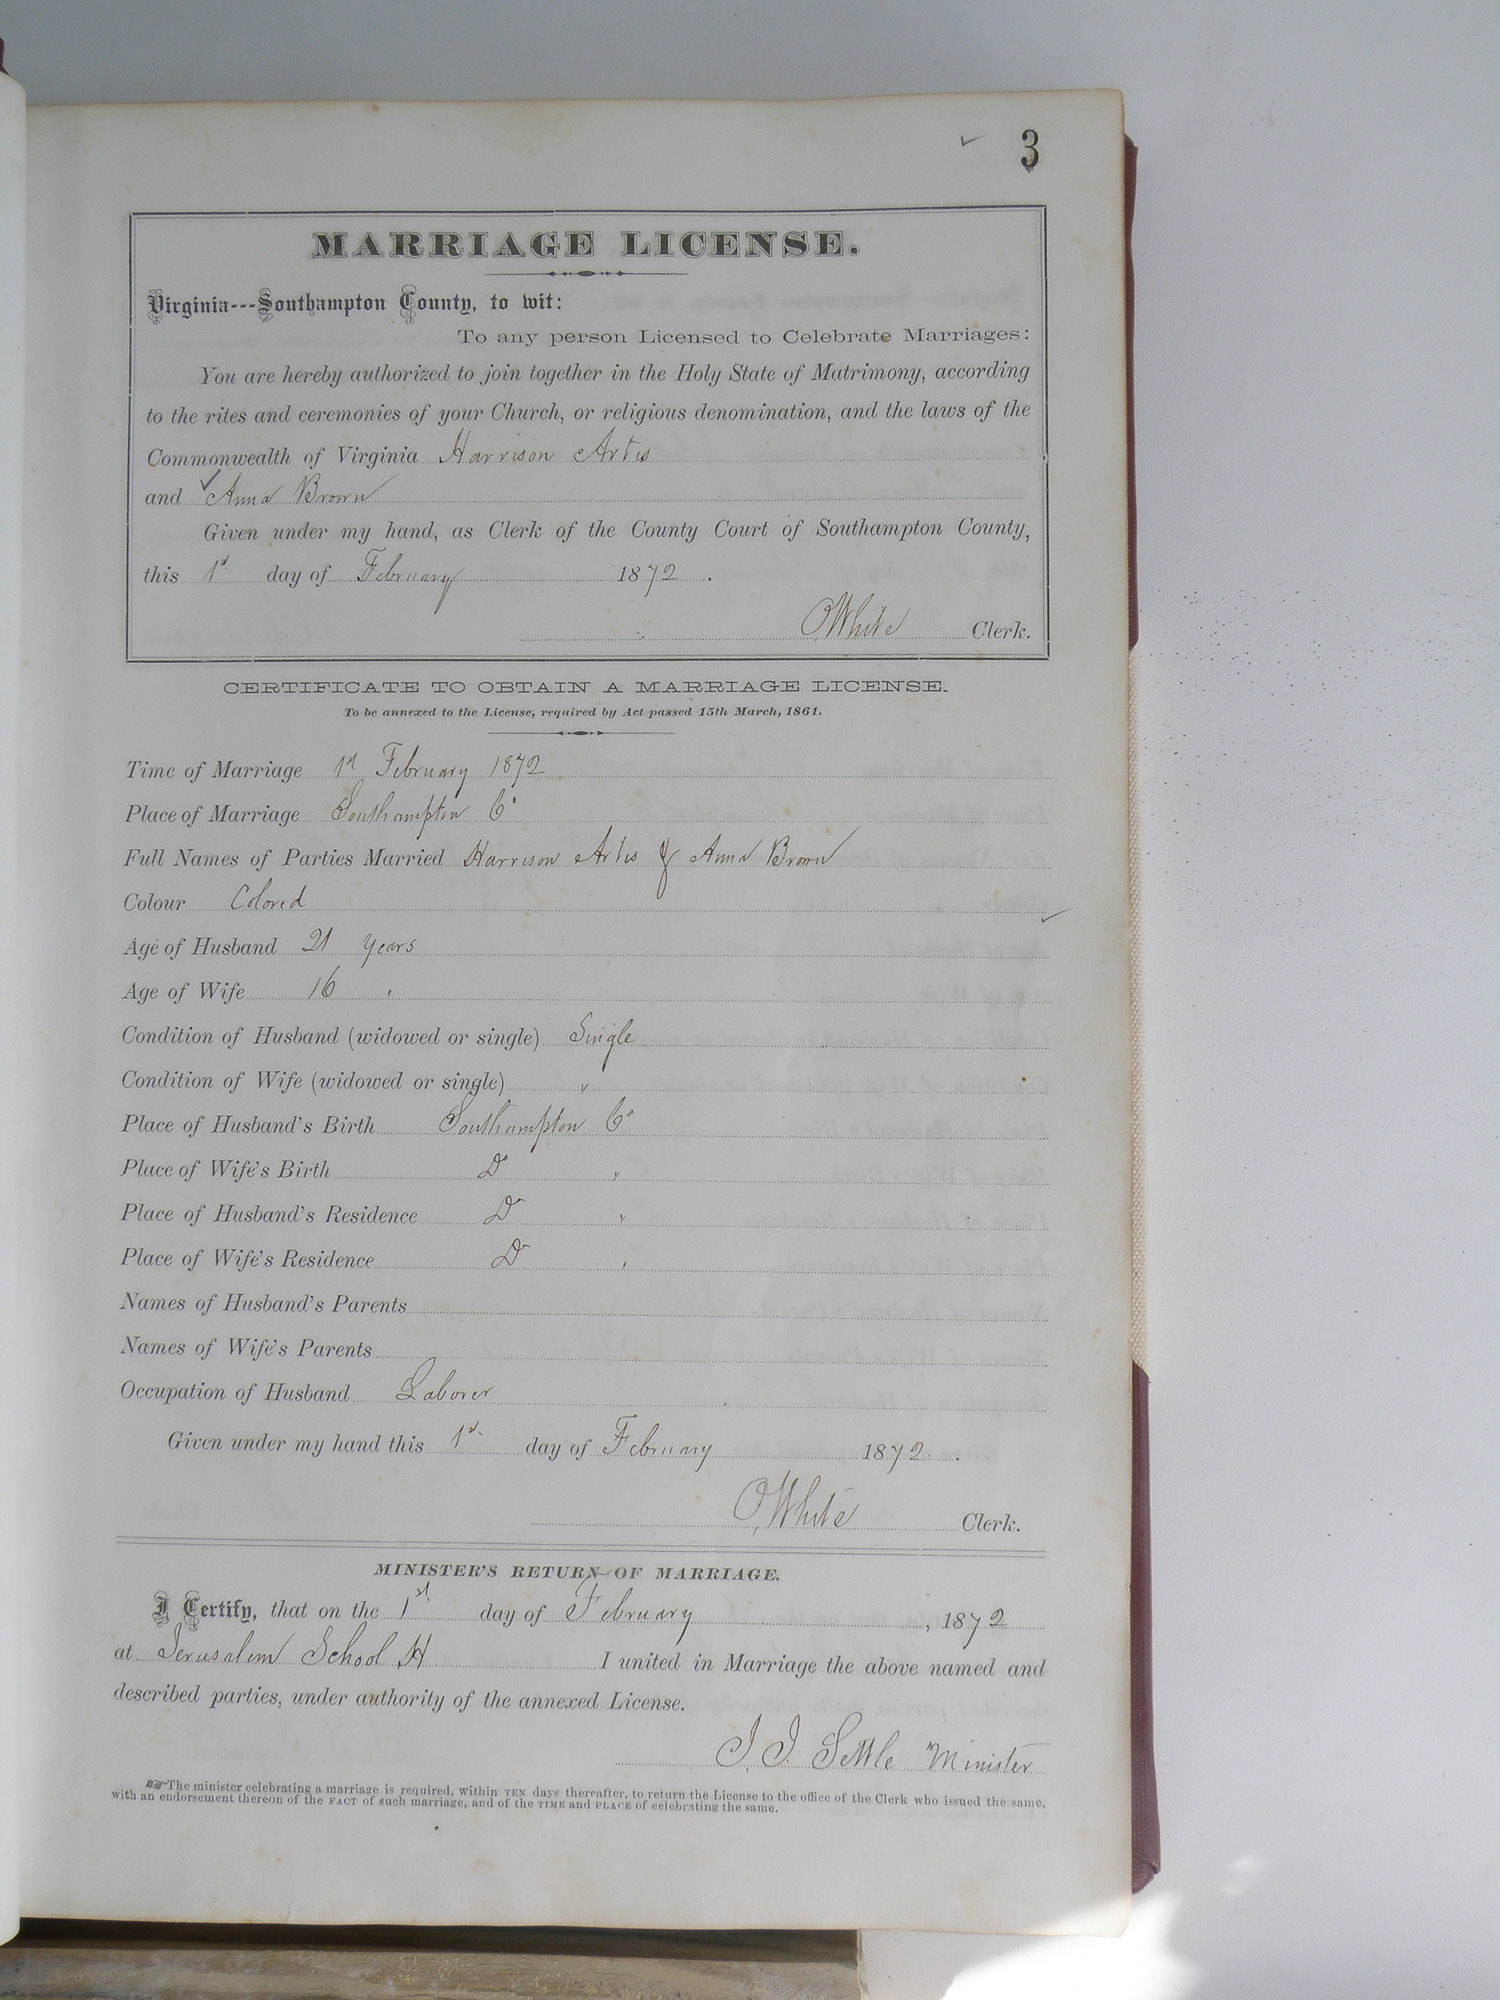 3
MARRIAGE LICENSE.
Virginia---Southampton County, to wit:
To any person Licensed to Celebrate Marriages:
You are hereby authorized to join together in the Holy State of Matrimony, according
to the rites and ceremonies of your Church, or religious denomination, and the laws of the
Commonwealth of Virginia Harrison Artis
and Anna Brown
Given under my hand, as Clerk of the County Court of Southampton County,
this 1st day of February 1872 .
O. White Clerk.
CERTIFICATE TO OBTAIN A MARRIAGE LICENSE.
To be annexed to the License, required by Act passed 15th March, 1861.
Time of Marriage 1st February 1872
Place of Marriage Southampton Co
Full Names of Parties Married Harrison Artis & Anna Brown
Colour Colored
Age of Husband 21 years
Age of Wife 16 "
Condition of Husband (widowed or single) Single
Condition of Wife (widowed or single) "
Place of Husband's Birth Southampton Co
Place of Wife's Birth Do "
Place of Husband's Residence Do "
Place of Wife's Residence Do "
Names of Husband's Parents
Names of Wife's Parents
Occupation of Husband Laborer
Given under my hand this 1st day of February 1872 .
O. White Clerk.
MINISTER'S RETURN OF MARRIAGE.
I Certify, that on the 1st day of February , 1872
at Jerusalem School H I united in Marriage the above named and
described parties, under authority of the annexed License.
J. J. Settle Minister
☞The minister celebrating a marriage is required, within TEN days thereafter, to return the License to the office of the Clerk who issued the same,
with an endorsement thereon of the FACT of such marriage, and of the TIME and PLACE of celebrating the same.